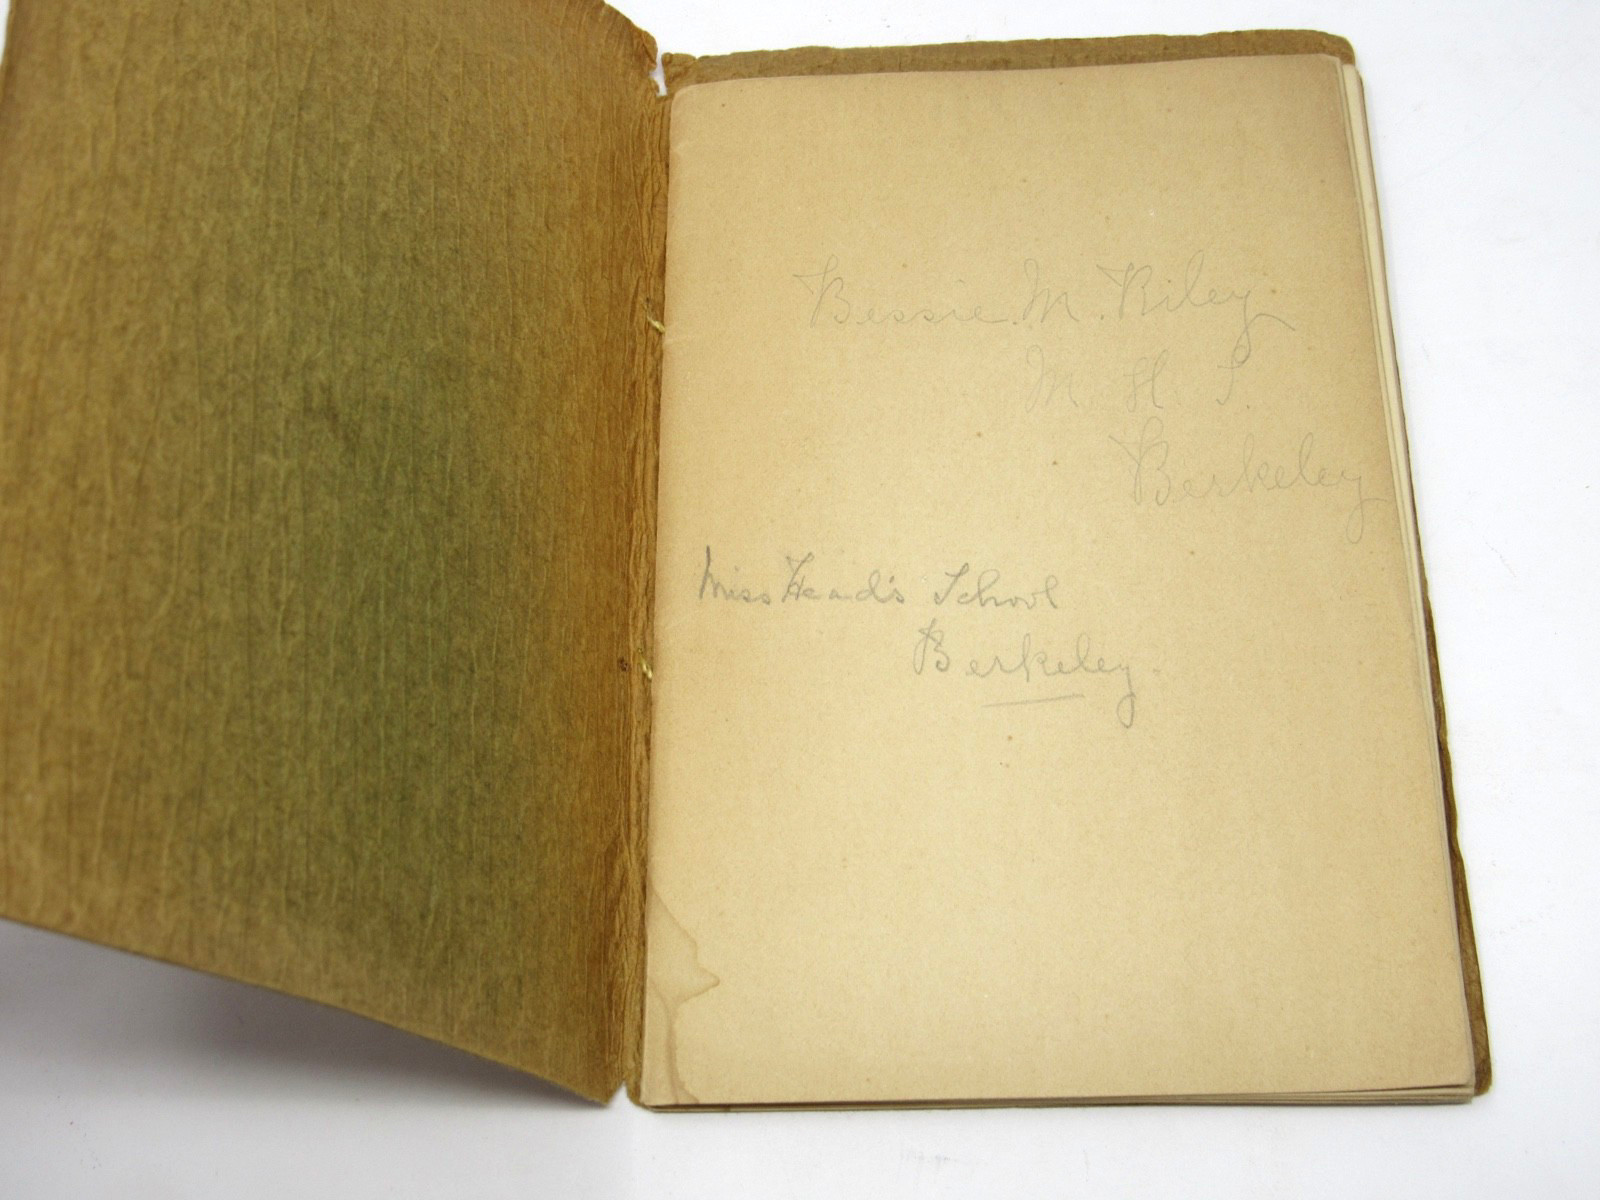 Bessie. M. Riley
M. H. S.
Berkeley
Miss Head's School
Berkeley